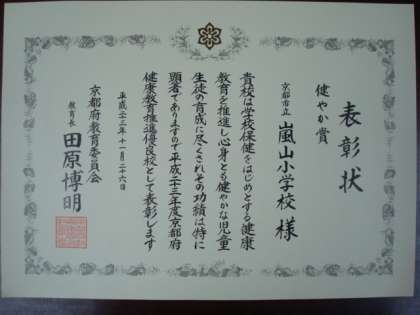 表彰状
健やか賞
京都市立 嵐山小学校 様
貴校は学校保健をはじめとする健康
教育を推進し心身とも健やかな児童
生徒の育成に尽くされその功績は特に
顕著でありますので平成二十三年度京都府
健康教育推進優良校として表彰します
平成二十三年十一月二十六日
京都府教育委員会
教育長 田原博明